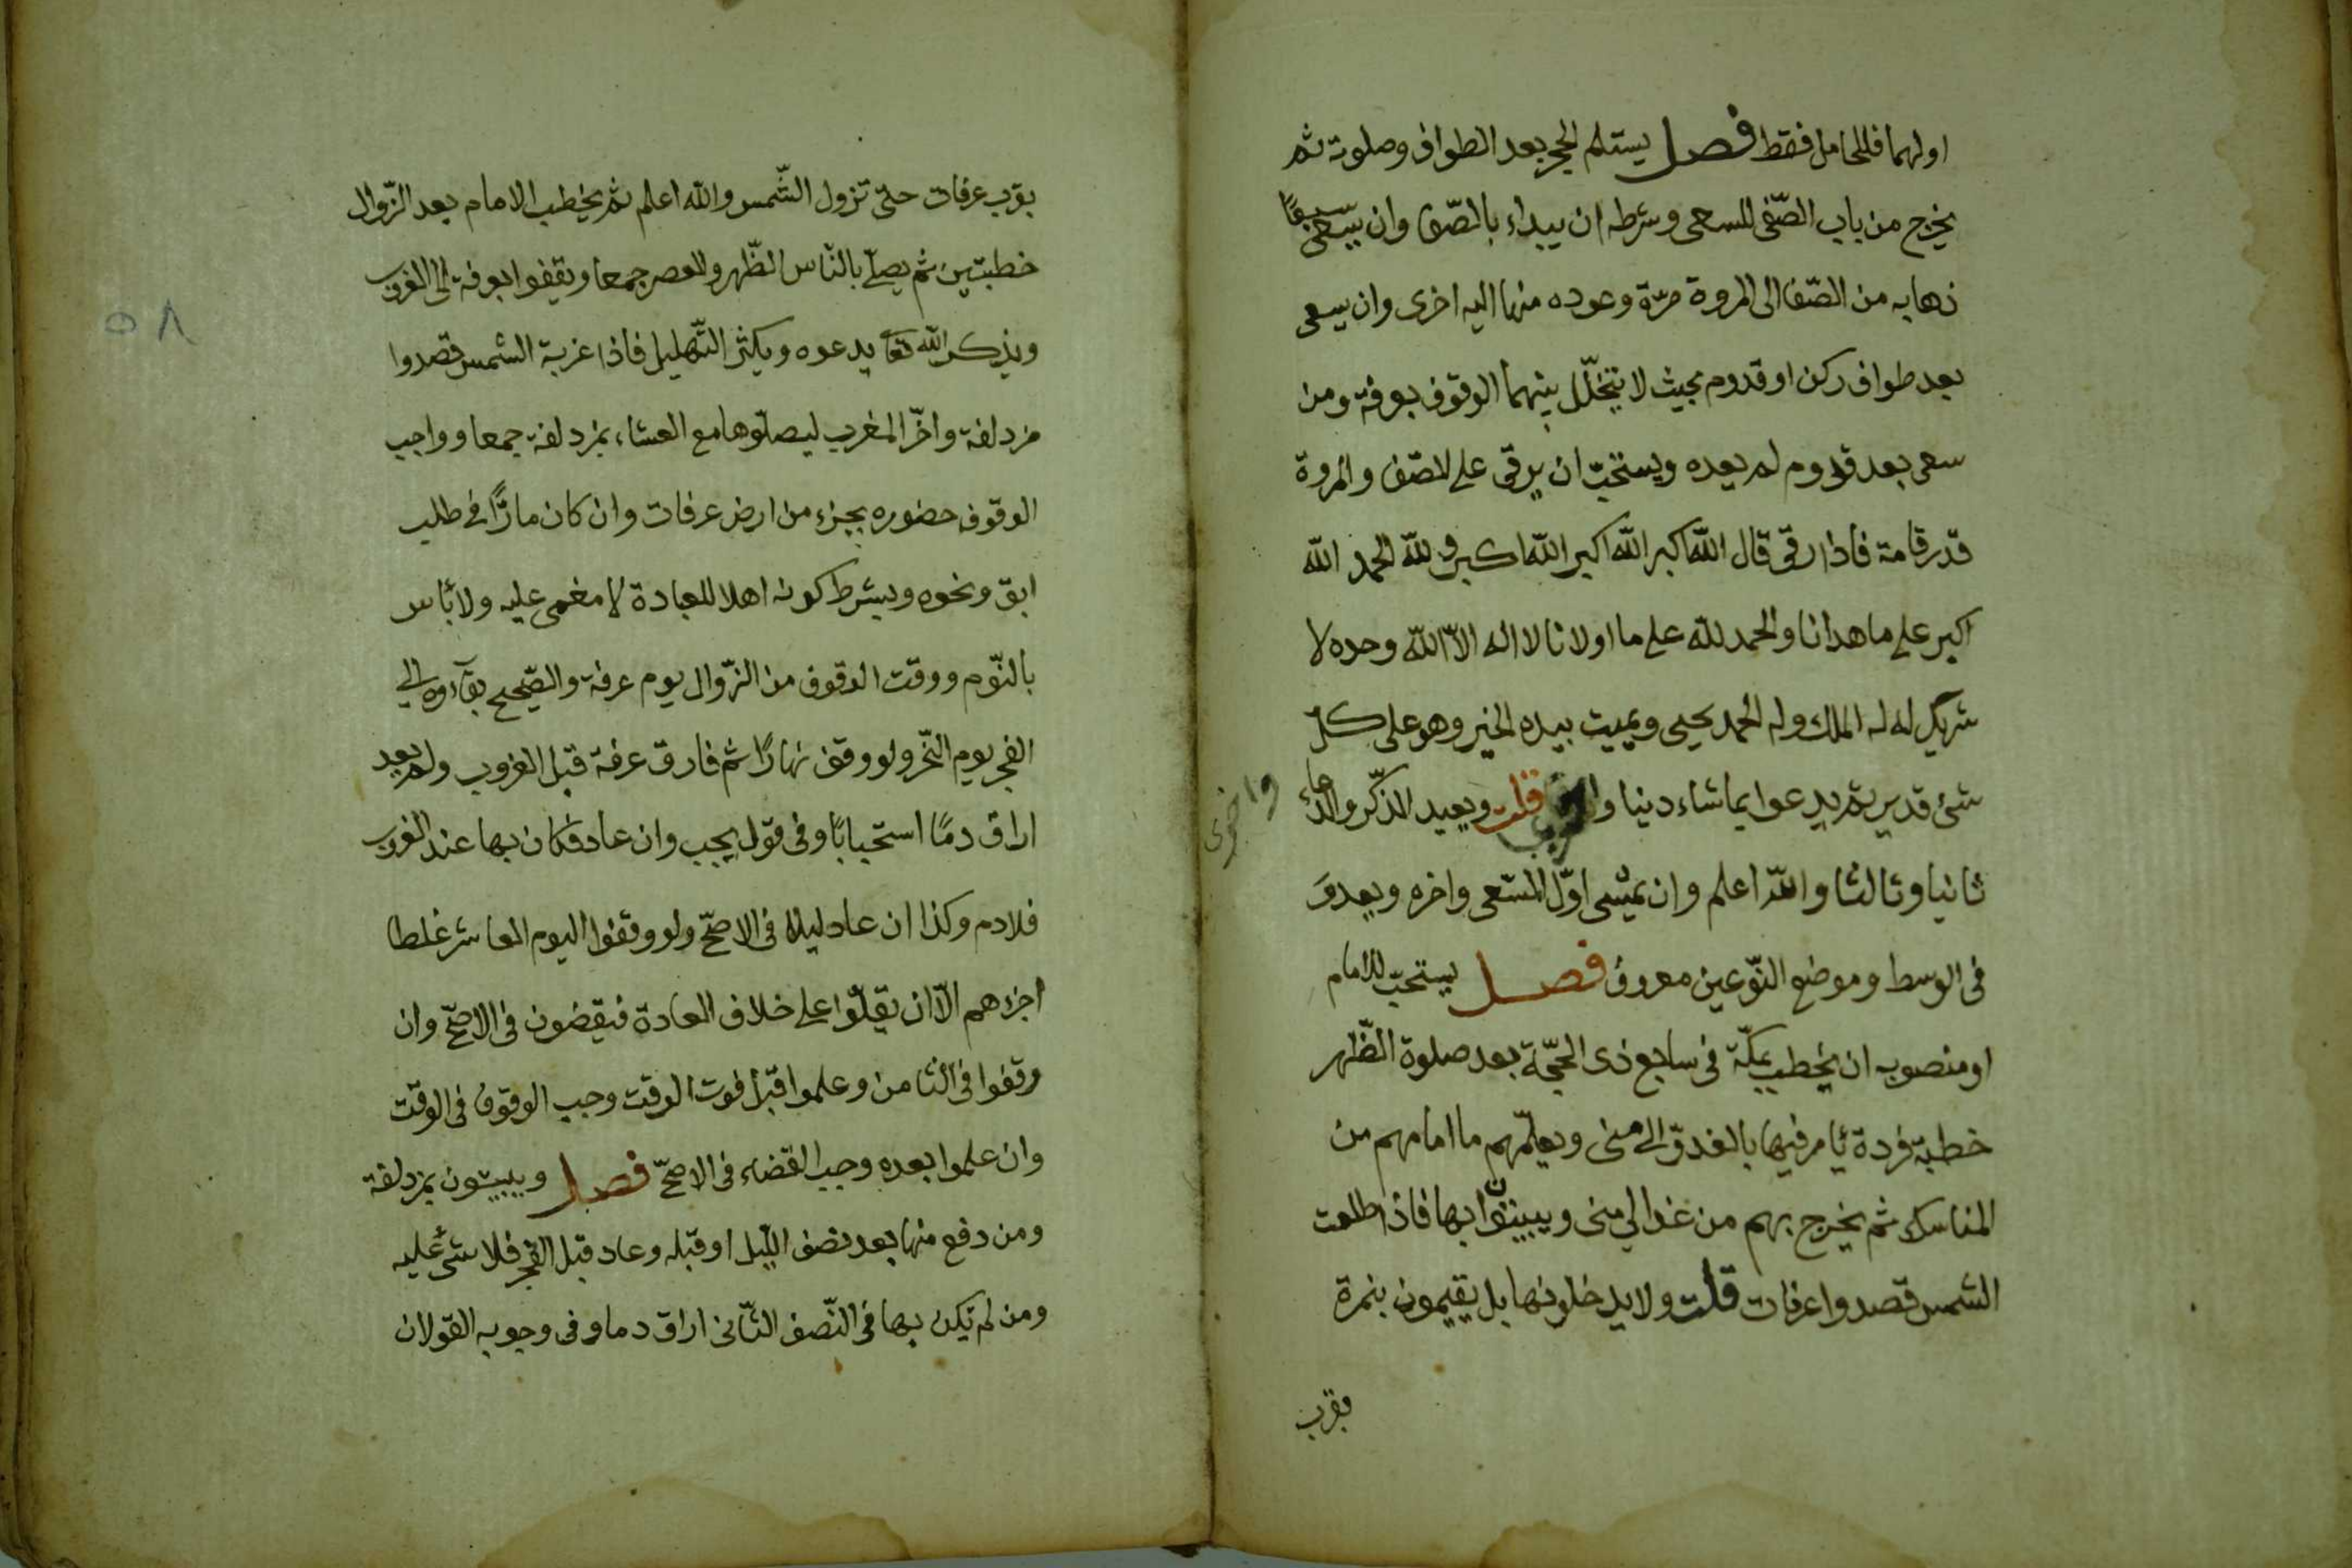 اولهما فللحامل فقط فصل يستلم الحجر بعد الطواف وصلوته ثم
يخرج من باب الصّفى للسعى وشرطه ان يبداء بالصّفا وان يسعى سبعًا
ذهابه من الصّفا الى المروة مرّة وعوده منها اليه اخرى وان يسعى
بعد طواف ركن او قدوم بحيث لا يتخلّل بينهما الوقوف بعرفة ومن
سعى بعد قدوم لم يعده ويستحبّ ان يرقى على الصّفا والمروة
قدر قامة فاذا رقى قال الله اكبر الله اكبر الله اكبر و لله الحمد الله
اكبر على ما هدانا والحمد لله على ما اولانا لا اله الاّ الله وحده لا
شريك له له الملك وله الحمد يحيى ويميت بيده الخير وهو على كل
شئ قدير ثم يدعوا بما شاء دنيا قلت ويعيد الذّكر والدّعاء
واخرى
ثانيا وثالثا والله اعلم وان يمشى اوّل المسعى واخره ويعدو
فى الوسط وموضع النّوعين معروف فصل يستحبّ للامام
او منصوبه ان يخطب بمكّة فى سابع ذى الحجّة بعد صلوة الظّهر
خطبة فردة يأمر فيها بالغدوّ الى منى ويعلّمهم ما امامهم من
المناسك ثم يخرج بهم من غد الى منى ويبيتوا بها فاذا طلعت
الشمس قصدوا عرفات قلت ولا يدخلونها بل يقيمون بنمرة
بقرب
بقرب عرفات حتى تزول الشّمس والله اعلم ثم يخطب الامام بعد الزّوال
خطبتين ثم يصلّى بالنّاس الظّهر والعصر جمعا ويقفوا بعرفة الى الغروب
ويذكر الله تعا يدعوه ويكثر التّهليل فاذا غربة الشمس قصدوا
٥٨
مزدلفة واخّر المغرب ليصلّوها مع العشاء بمزدلفة جمعا وواجب
الوقوف حضوره بجزء من ارض عرفات وان كان مارًّا فى طلب
ابق ونحوه ويشرط كونه اهلا للعبادة لا مغمى عليه ولا بأس
بالنّوم ووقت الوقوف من الزّوال يوم عرفة والصّحيح بقآءوه الى
الفجر يوم النّحر ولو وقف نهارًا ثم فارق عرفة قبل الغروب ولم يعد
اراق دمًا استحبابًا وفى قول يجب وان عاد فكان بها عند الغروب
فلا دم وكذا ان عاد ليلا فى الاصحّ ولو وقفوا اليوم العاشر غلطا
اجزءهم الاّ ان يقلّوا على خلاف العادة فيقضون فى الاصحّ وان
وقفوا فى الثامن وعلموا قبل فوت الوقت وجب الوقوف فى الوقت
وان علموا بعده وجب القضاء فى الاصحّ فصل ويبيتون بمزدلفة
ومن دفع منها بعد نصف اللّيل او قبله وعاد قبل الفجر فلا شئ عليه
ومن لم يكن بها فى النّصف الثّانى اراق دما وفى وجوبه القولان